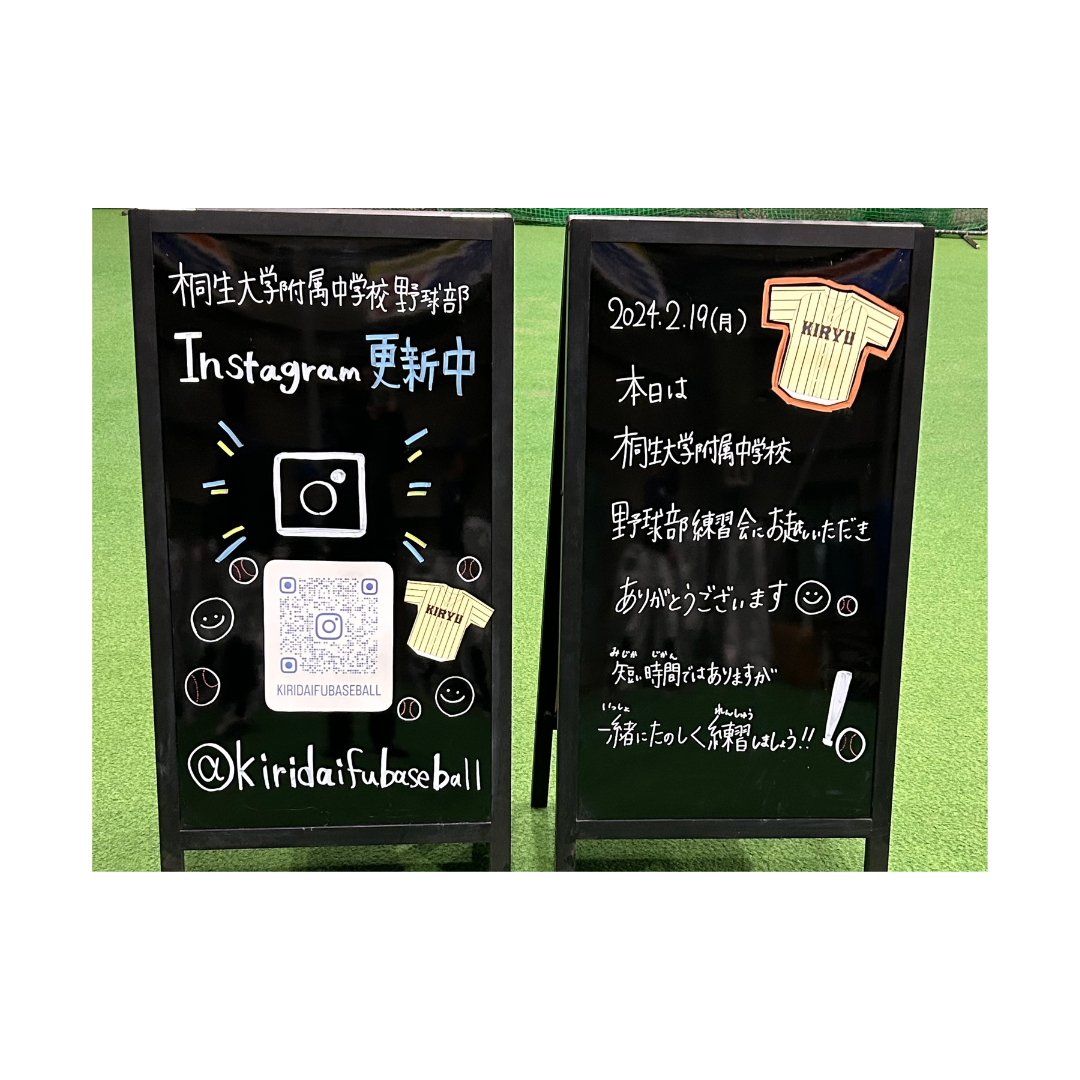 桐生大学附属中学校野球部
Instagram更新中
KIRYU
KIRIDAIFUBASEBALL
@kiridaifubaseball
2024.2.19(月)
KIRYU
本日は
桐生大学附属中学校
野球部練習会にお越しいただき
ありがとうございます
みじか じかん
短い時間ではありますが
いっしょ れんしゅう
一緒にたのしく練習しましょう!!